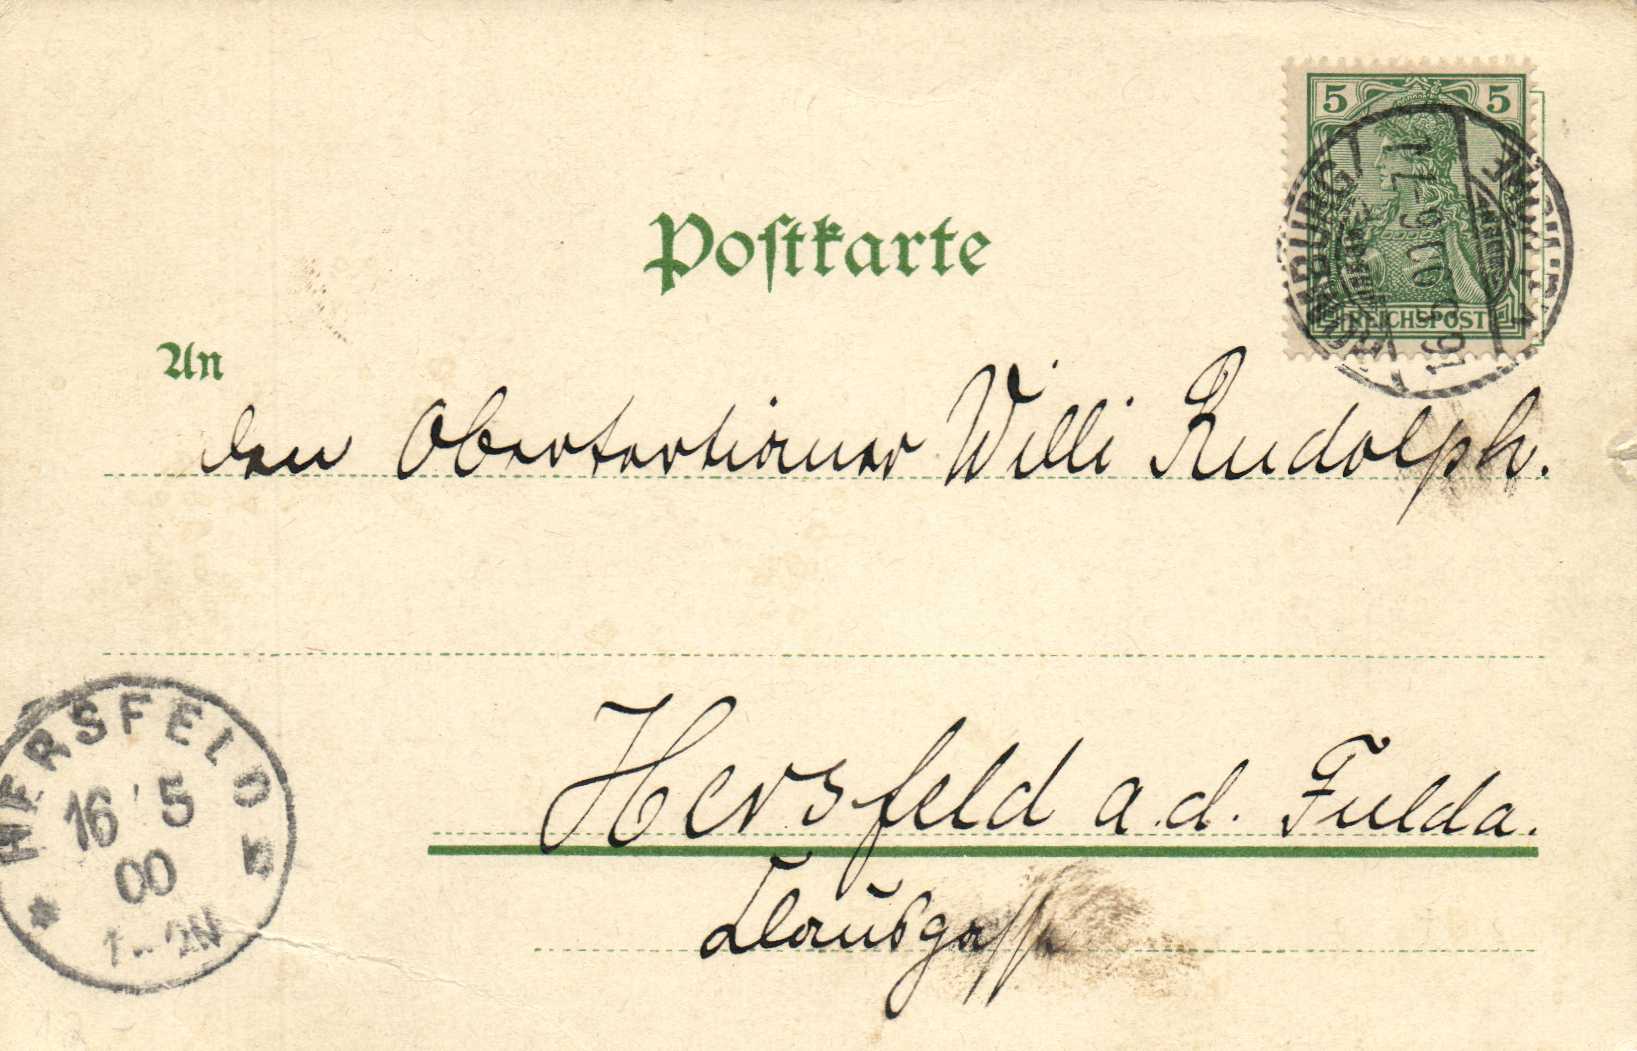 5 5
REICHSPOST
Postkarte
An
den Obertertianer Willi Rudolph.
Hersfeld a.d. Fulda.
Clausgasse
HERSFELD
16 5
00
1-2N